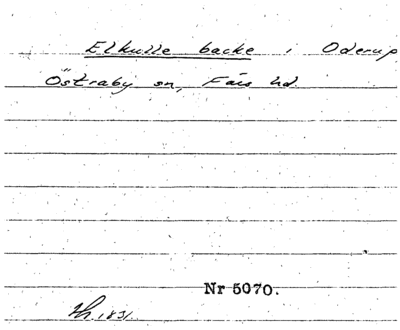 Elkulle backe i Oderup
Östraby sn, Färs hd.
Nr 5070.
Th. 1831.